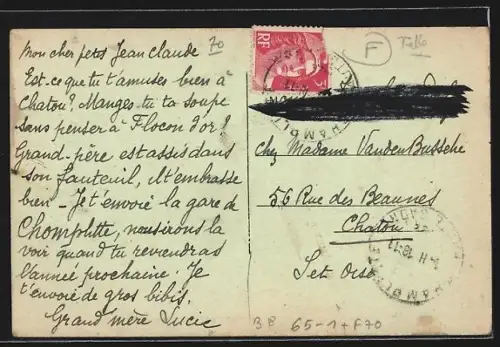 Mon cher petit Jean Claude
Est-ce que tu t'amuses bien à
Chatou? Manges-tu ta soupe
sans penser à Flocon d'or?
Grand-père est assis dans
son fauteuil, il t'embrasse
bien - Je t'envoie la gare de
Champlitte, nous irons la
voir quand tu reviendras
l'année prochaine. Je
t'envoie de gros bibis.
Grand mère Lucie
70
F
RF
chez Madame VandenBussche
56 Rue des Beaunes
Chatou
Set Oise
18-11
BE 65-1+F70